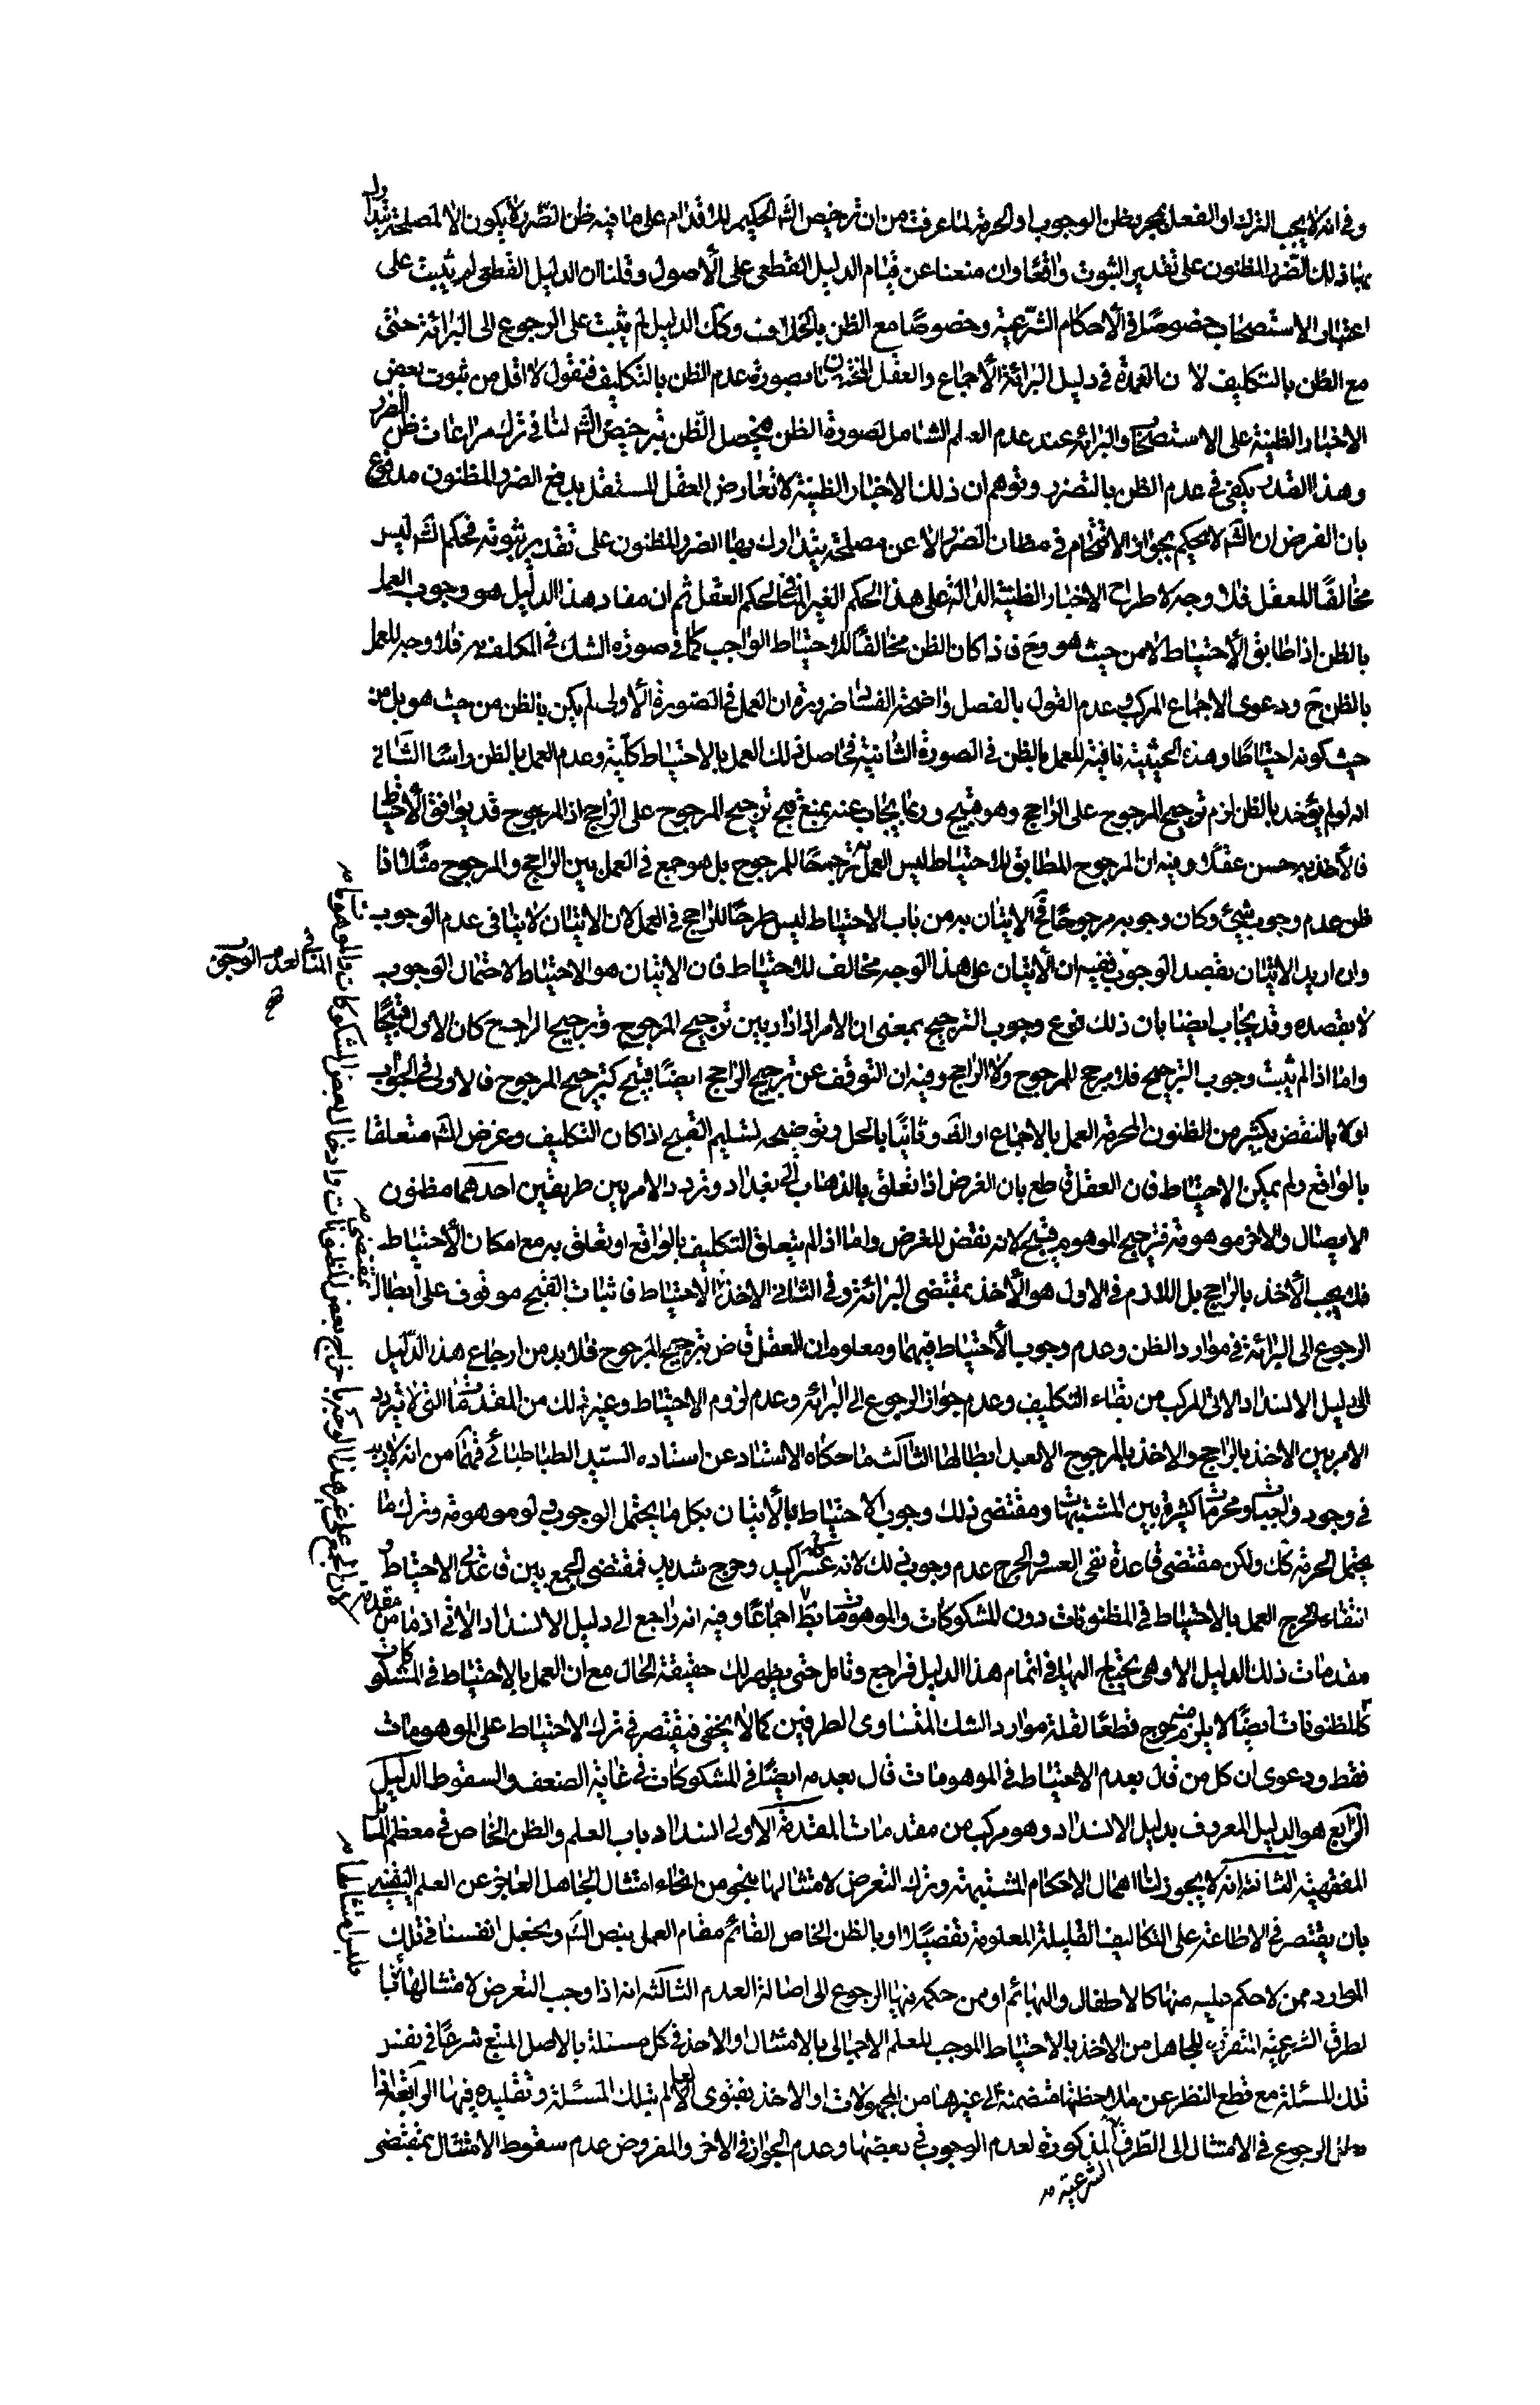 وفى انه لا يجب الترك او الفعل بمجرد ظن الوجوب او الحرمة لما عرفت من ان ترخيص الشه الحكيم للاقدام على ما فيه ظن الضّرر لا يكون الا لمصلحة يتدارك
بها ذلك الضّرر المظنون على تقدير الثبوت واقعًا وان منعنا عن قيام الدليل القطعى على الأصول وقلنا ان الدليل القطعى لم يثبت على
اعتبار الاستصحاب خصوصًا فى الأحكام الشّرعية وخصوصًا مع الظن بالخلاف وكك الدليل لم يثبت على الرجوع الى البرائة حتى
مع الظن بالتكليف لان العمدة فى دليل البرائة الأجماع والعقل المختصان بصورة عدم الظن بالتكليف فنقول لا اقل من ثبوت بعض
الاخبار الظنية على الاستصحاب والبرائة عند عدم العلم الشامل لصورة الظن فيحصل الظّن بترخيص الشه لنا فى ترك مراعات ظن الضرر
وهذا القدر يكفى فى عدم الظن بالتضرر وتوهم ان ذلك الاخبار الظنية لا تعارض العقل المستقل بدفع الضرر المظنون مدفوع
بان الفرض ان الشه لا يحكم بجواز الاقتحام فى مظان الضرر الا عن مصلحة يتدارك بها الضرر المظنون على تقدير ثبوته فحكم الشه ليس
مخالفًا للعقل فلا وجه لاطراح الاخبار الظنية الدالة على هذا الحكم الغير المنافى لحكم العقل ثم ان مفاد هذا الدليل هو وجوب العمل
بالظن اذا طابق الأحتياط لا من حيث هو وح فاذا كان الظن مخالفًا للاحتياط الواجب كما فى صورة الشك فى المكلف به فلا وجه للعمل
بالظن ح ودعوى الاجماع المركب وعدم القول بالفصل واضحة الفساد ضرورة ان العمل فى الصّورة الأولى لم يكن بالظن من حيث هو بل من
حيث كونه احتياطًا وهذه الحيثية نافية للعمل بالظن فى الصورة الثانية فحاصل ذلك العمل بالاحتياط كلّية وعدم العمل بالظن واسًا الثانى
انه لو لم يؤخذ بالظن لزم ترجيح المرجوح على الراجح وهو قبيح وربما يجاب عنه بمنع قبح ترجيح المرجوح على الراجح اذ المرجوح قد يوافق الأحتياط
فالأخذ به حسن عقلا وفيه ان المرجوح المطابق للاحتياط ليس العمل به ترجيحًا للمرجوح بل هو جمع فى العمل بين الراجح والمرجوح مثلا اذا
ظن عدم وجوب شئ وكان وجوبه مرجوحًا فح الاتيان به من باب الاحتياط ليس طرحًا للراجح فى العمل لان الاتيان لا ينافى عدم الوجوب
وان اريد الاتيان بقصد الوجوب ففيه ان الأتيان على هذا الوجه مخالف للاحتياط فان الاتيان هو الاحتياط لاحتمال الوجوب
لا بقصده وقد يجاب ايضا بان ذلك فرع وجوب الترجيح بمعنى ان الامر اذا دار بين ترجيح المرجوح وترجيح الراجح كان الاول قبيحًا
واما اذا لم يثبت وجوب الترجيح فلا مرجح للمرجوح ولا الراجح وفيه ان التوقف عن ترجيح الراجح ايضًا قبيح كترجيح المرجوح فالاولى فى الجواب
اولا بالنقض بكثير من الظنون المحرمة العمل بالاجماع او القـ وثانيًا بالحل وتوضيحه تسليم القبح اذا كان التكليف وغرض الشه متعلقًا
بالواقع ولم يمكن الاحتياط فان العقل قاطع بان الغرض اذا تعلق بالذهاب الى بغداد وتردد الامر بين طريقين احدهما مظنون
الايصال والاخر موهومه فترجيح الموهوم قبيح لانه نقض للغرض واما اذا لم يتعلق التكليف بالواقع او تعلق به مع امكان الأحتياط
فلا يجب الأخذ بالراجح بل اللازم فى الاول هو الأخذ بمقتضى البرائة وفى الثانى الاخذ بالاحتياط فاثبات القبح موقوف على ابطال
الرجوع الى البرائة فى موارد الظن وعدم وجوب الأحتياط فيهما ومعلوم ان العقل قاض بترجيح المرجوح فلا بد من ارجاع هذا الدّليل
الى دليل الانسداد الاتى المركب من بقاء التكليف وعدم جواز الرجوع الى البرائة وعدم لزوم الاحتياط وغير ذلك من المقدمات التى لا تردد
الامر بين الاخذ بالراجح والاخذ بالمرجوح الا بعد ابطالها الثالث ما حكاه الاستاد عن استاده السّيد الطباطبائى قدهما من انه لا ريب
فى وجود واجبات ومحرمات كثيرة بين المشتبهات ومقتضى ذلك وجوب الاحتياط بالأتيان بكل ما يحتمل الوجوب ولو موهومه وترك ما
يحتمل الحرمة كك ولكن مقتضى قاعدة نفى العسر والحرج عدم وجوب ذلك لانه عسر اكيد وحرج شديد فمقتضى الجمع بين قاعدتى الاحتياط و
انتفاء الحرج العمل بالاحتياط فى المظنونات دون المشكوكات والموهومات اجماعًا وفيه انه راجع الى دليل الانسداد الاتى اذ ما من مقدمة
مقدمات ذلك الدليل الا وهى يحتاج اليها فى اتمام هذا الدليل فراجع وتامل حتى يظهر لك حقيقة الحال مع ان العمل بالاحتياط فى المشكوكات
كالمظنونات ايضًا لا يلزم منه حرج قطعًا لقلة موارد الشك المتساوى الطرفين كما لا يخفى فيقتصر فى ترك الاحتياط على الموهومات
فقط ودعوى ان كل من قال بعدم الاحتياط فى الموهومات قال بعدمه ايضًا فى المشكوكات فى غاية الضعف والسقوط الدليل
الرّابع هو الدليل المعروف بدليل الانسداد وهو مركب من مقدمات المقدمة الاولى انسداد باب العلم والظن الخاص فى معظم المسائل
الفقهية الثانية انه لا يجوز لنا اهمال الاحكام المشتبهة وترك التعرض لامتثالها بنحو من انحاء امتثال الجاهل العاجز عن العلم اليقينى
بان يقتصر فى الاطاعة على التكاليف القليلة المعلومة تفصيلا او بالظن الخاص القائم مقام العلم بنص الشه ويجعل انفسنا فى تلك
الموارد ممن لا حكم عليه منها كالاطفال والبهائم او ممن حكمه فيها الرجوع الى اصالة العدم الثالثة انه اذا وجب التعرض لامتثالها
لطرق الشرعية المتقررة للجاهل من الاخذ بالاحتياط الموجب للعلم الاجمالى بالامتثال او الاخذ فى كل مسئلة بالاصل المتبع شرعًا فى نفس
تلك المسئلة مع قطع النظر عن ملاحظتها متضمنة الى غيرها من المجهولات او الاخذ بفتوى العالم بتلك المسئلة وتقليده فيها الرابعة اذا
بطل الرجوع فى الامتثال الى الطّرق المذكورة لعدم الوجوب فى بعضها وعدم الجواز فى الاخر والمفروض عدم سقوط الامتثال بمقتضى
الشرعية
المنافى لعدم الوجوب
لان الجمع على غير هذا الوجه باخراج بعض المظنونات وادخال بعض المشكوكات والموهومات
بمقتضى
فليس امتثالها